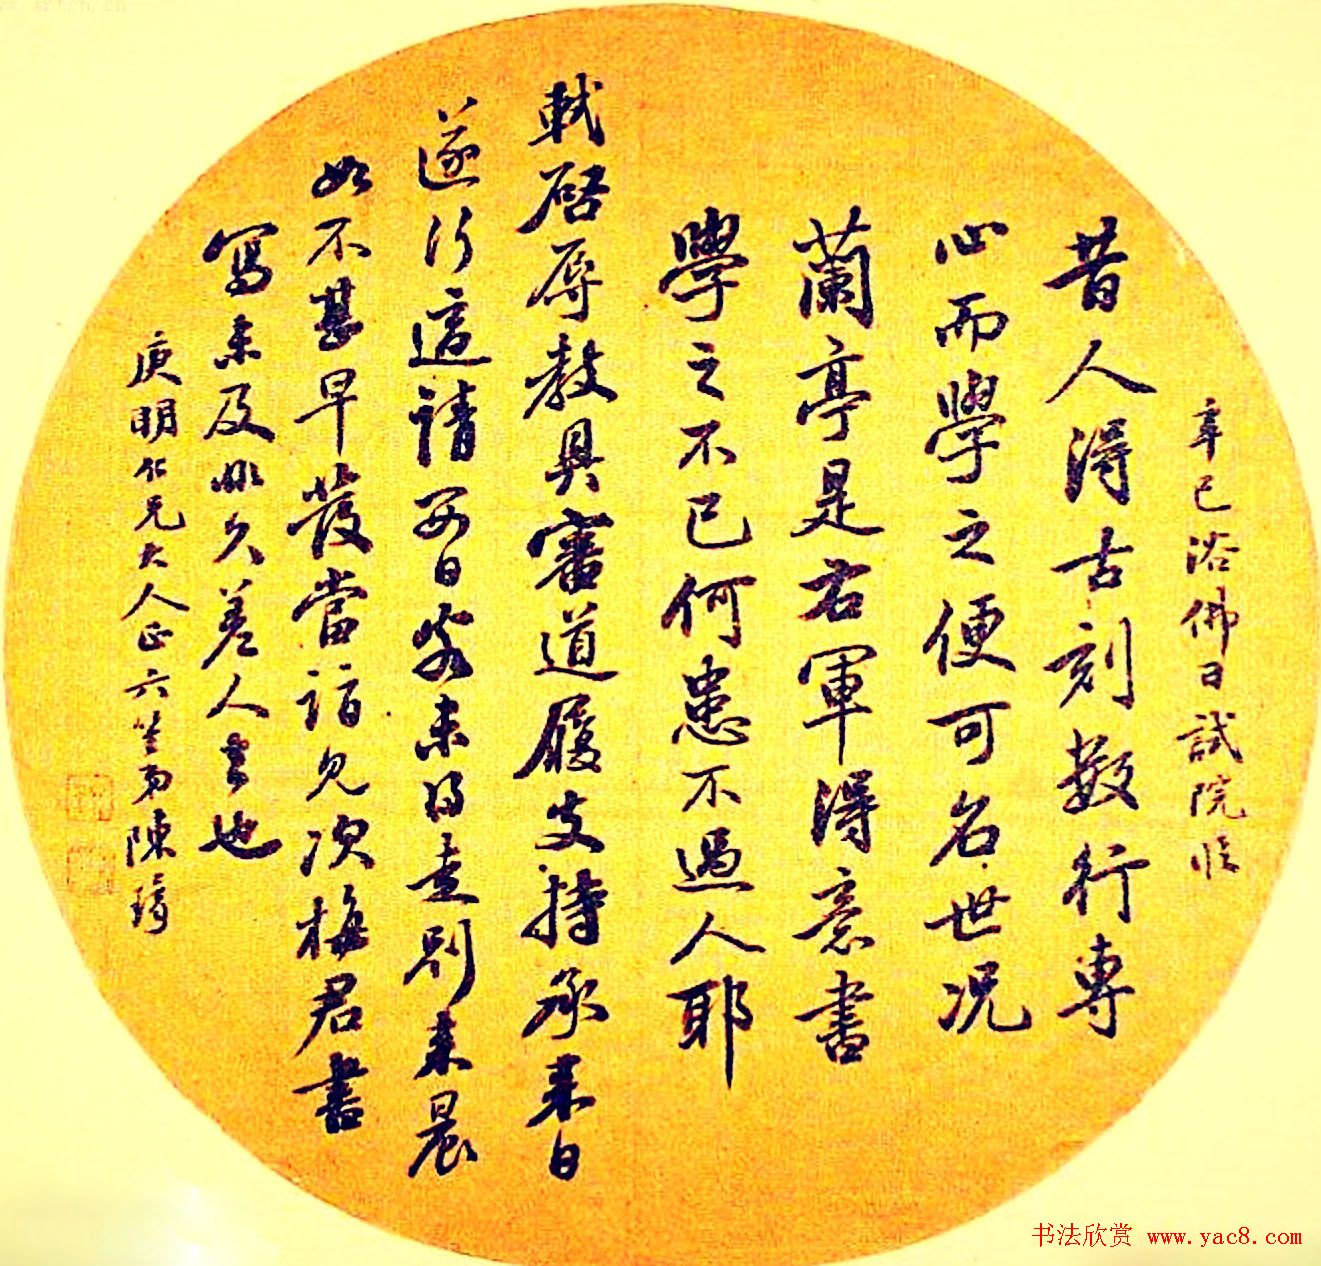 辛巳浴佛日試院臨
昔人得古刻數行專
心而學之便可名世况
蘭亭是右軍得意書
學之不已何患不過人耶
軾啓辱教具審道履支持承來日
遂行適請數日客未得走別來晨
如不甚早發當詣見次梅君書
寫未及非久差人去也
庚明仁兄大人正 六笙弟陳琦
书法欣赏 www.yac8.com